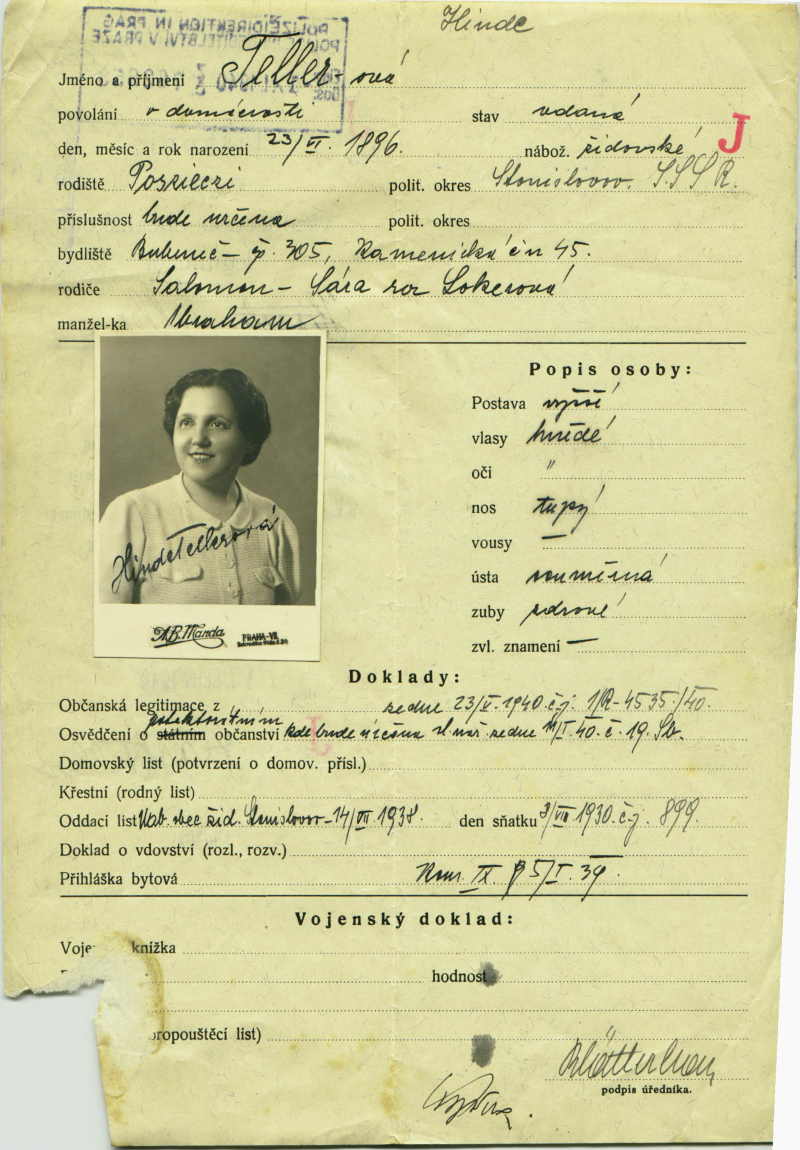 Hinde
POLIZEIDIREKTION IN PRAG
Jméno a příjmení Teller-ová
povolání v domácnosti stav vdaná
den, měsíc a rok narození 23/VI. 1896. nábož. židovské J
rodiště polit. okres S.S.S.R.
příslušnost bude určena polit. okres
bydliště Bubeneč - čp. 305, Kamenická čn 45.
rodiče Salomon - Sára roz Lokerová
manžel-ka Abraham
Popis osoby:
Postava vyšší
vlasy hnědé
oči "
nos tupý
vousy —
ústa souměrná
zuby zdravé
zvl. znamení —
Hinde Tellerová
PRAHA-VII.
Doklady:
Občanská legitimace z ze dne 23/V. 1940. čj. 1/R-4535/40.
protektorátním
Osvědčení o státním občanství kde bude určena vl. nař. ze dne 11/I. 40. č. 19. Sb. J
Domovský list (potvrzení o domov. přísl.)
Křestní (rodný list)
Oddací list obec žid. - 14/VII. 1938. den sňatku 3/VIII 1930. č.j. 899.
Doklad o vdovství (rozl., rozv.)
Přihláška bytová Kom. IX. 5/I. 39.
Vojenský doklad:
knížka
hodnost
propouštěcí list)
podpis úředníka.